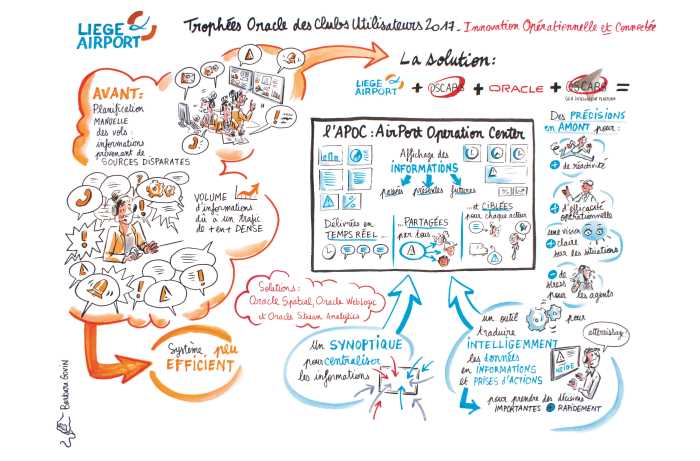 LIEGE
AIRPORT
Trophées Oracle des Clubs Utilisateurs 2017 - Innovation Opérationnelle et Connectée
La solution:
LIEGE
AIRPORT
+ OSCARS + ORACLE + OSCARS =
AVANT:
Planification
MANUELLE
des vols:
informations
provenant de
SOURCES DISPARATES
VOLUME
d'informations
dû à un trafic
de + en + DENSE
Système peu
EFFICIENT
Solutions:
Oracle Spatial, Oracle WebLogic
et Oracle Stream Analytics
l'APOC: AirPort Operation Center
Affichage des
INFORMATIONS
passées présentes futures
Délivrées en
TEMPS RÉEL...
...PARTAGÉES
par tous...
... et CIBLÉES
pour chaque acteur
Des PRÉCISIONS
en AMONT pour:
+ de réactivité
+ d'efficacité
opérationnelle
une vision
+ claire
sur les situations
- de
stress
pour les agents
Un SYNOPTIQUE
pour centraliser
les informations
un outil pour
traduire
INTELLIGEMMENT
les données
en INFORMATIONS
et PRISES d'ACTIONS
NEIGE
pour prendre des décisions
IMPORTANTES + RAPIDEMENT
Barbara Govin